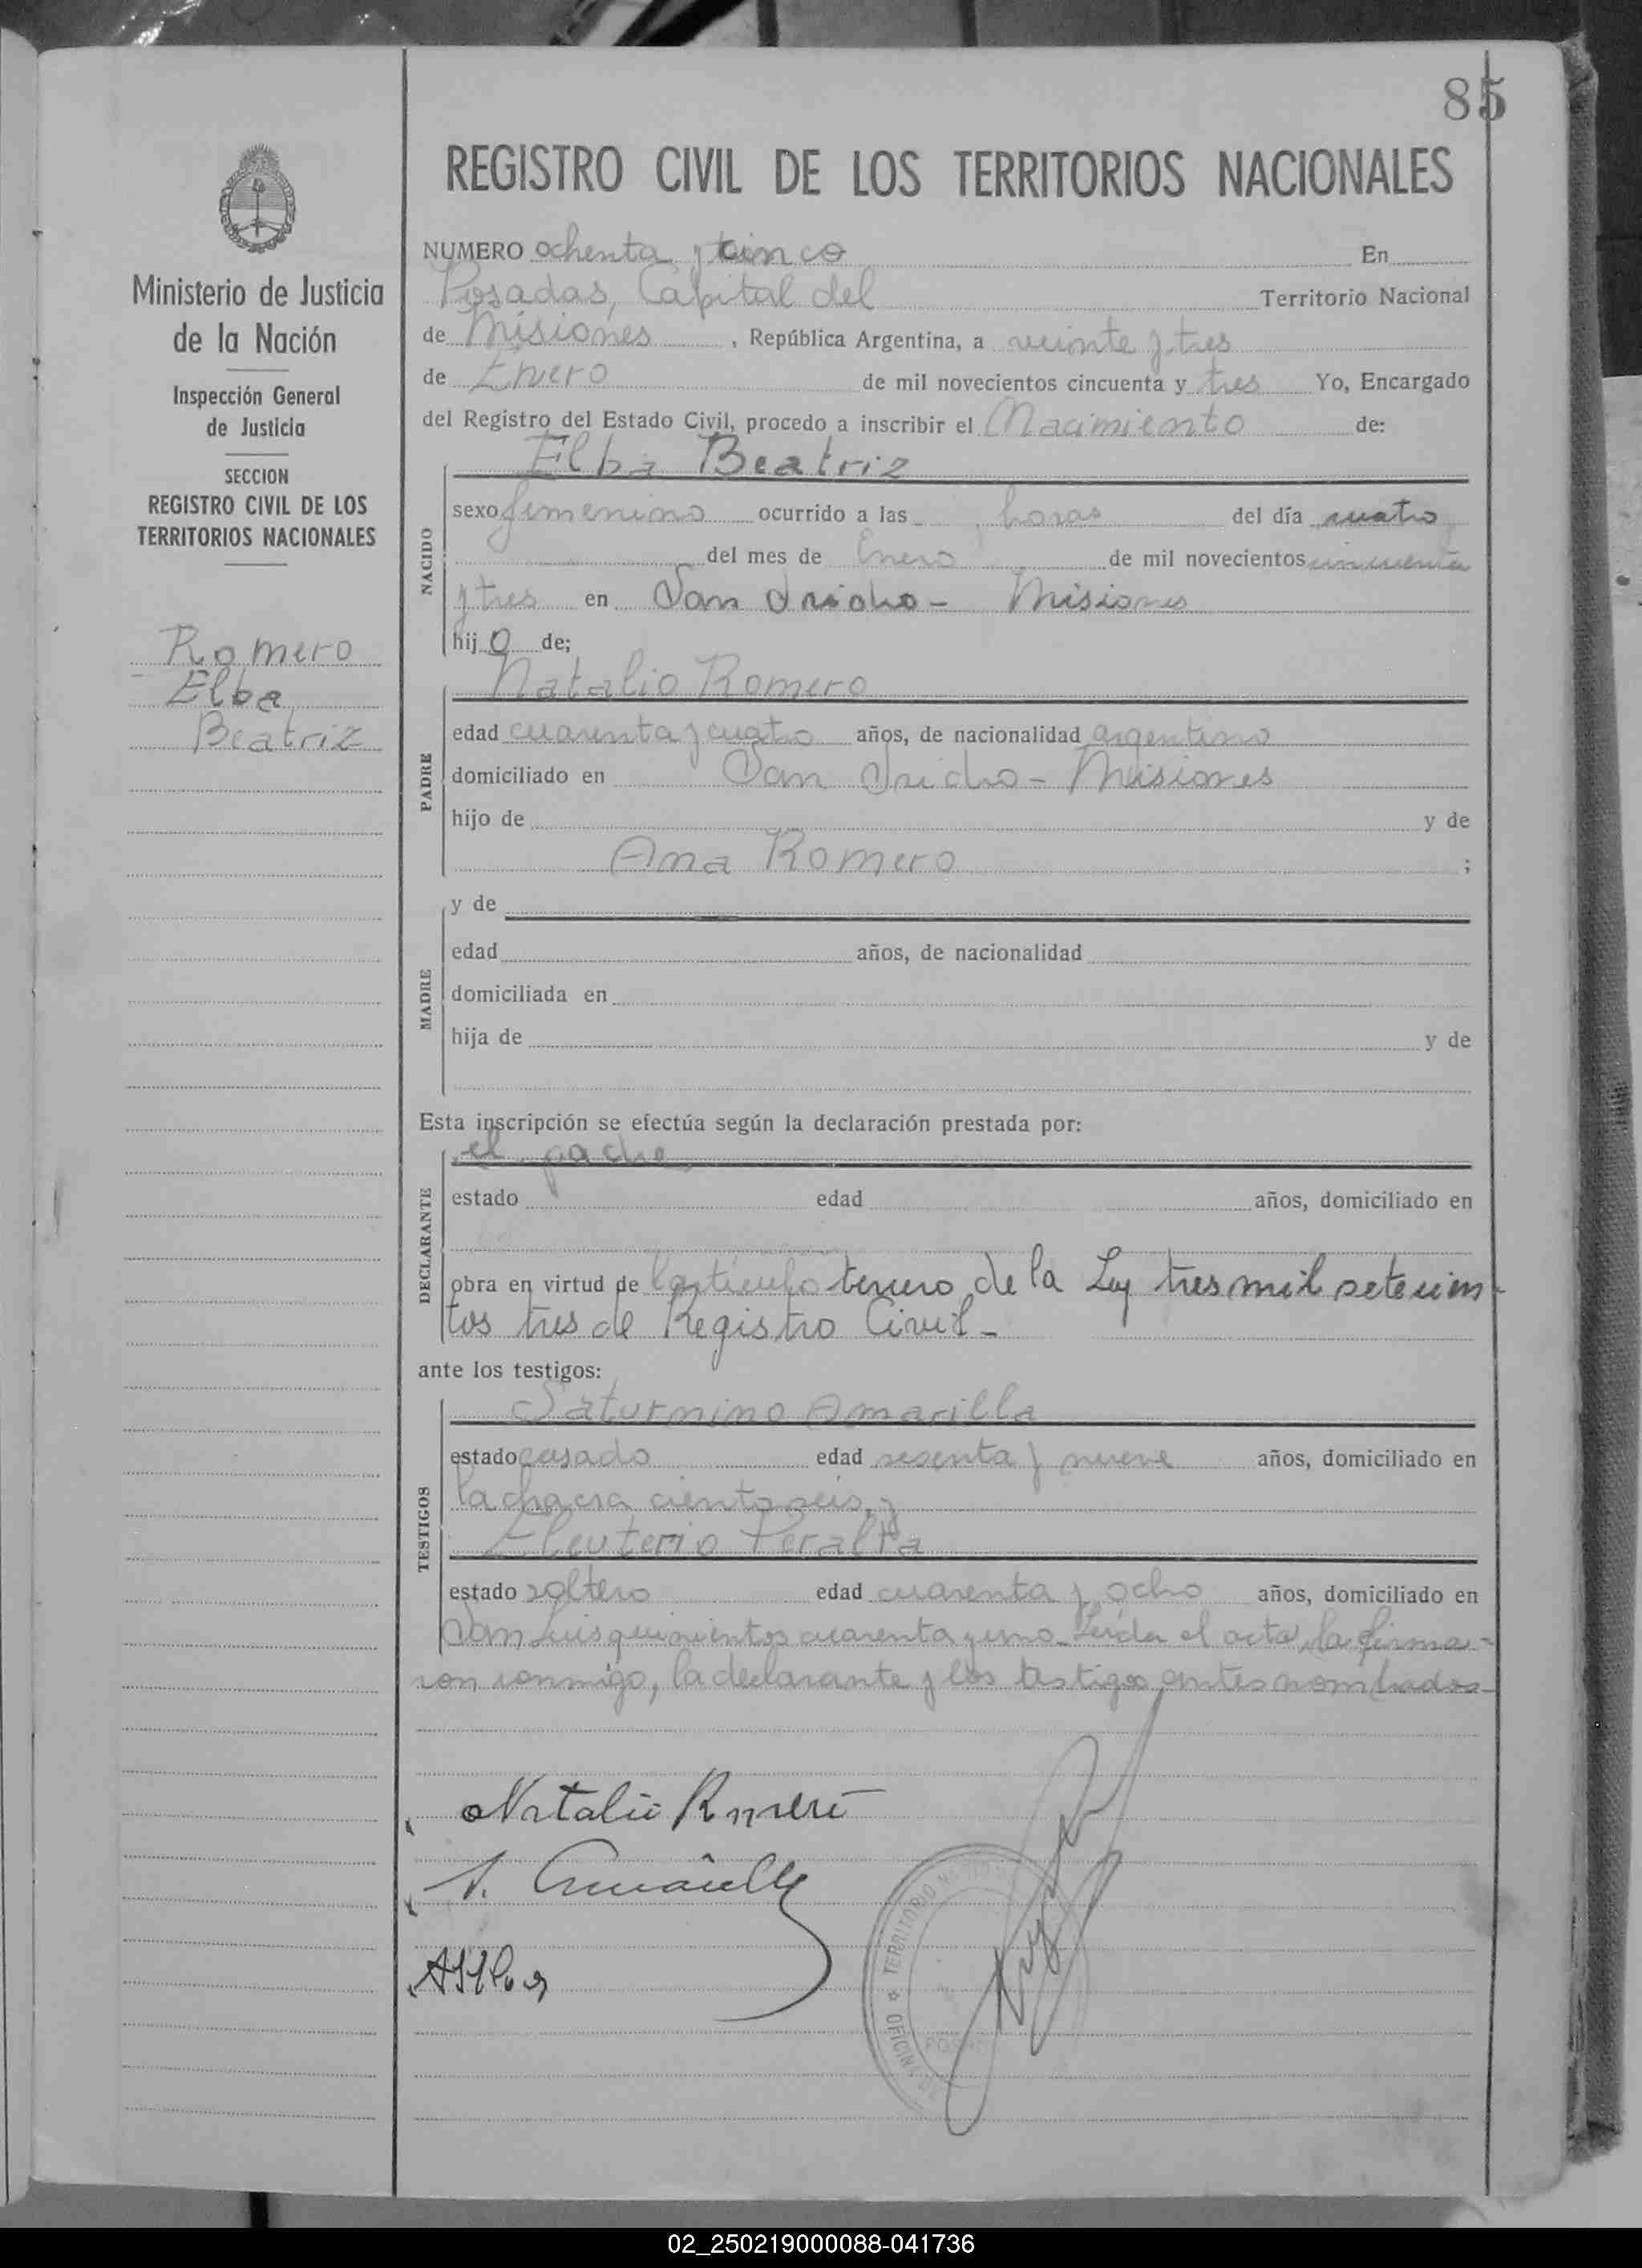 85
REGISTRO CIVIL DE LOS TERRITORIOS NACIONALES
Ministerio de Justicia
de la Nación
Inspección General
de Justicia
SECCION
REGISTRO CIVIL DE LOS
TERRITORIOS NACIONALES
Romero
Elba
Beatriz
NUMERO ochenta y cinco En
Posadas, Capital del Territorio Nacional
de Misiones , República Argentina, a veinte y tres
de Enero de mil novecientos cincuenta y tres Yo, Encargado
del Registro del Estado Civil, procedo a inscribir el Nacimiento de:
Elba Beatriz
NACIDO
sexo femenino ocurrido a las horas del día cuatro
del mes de Enero de mil novecientos cincuenta
y tres en San Isidro - Misiones
hij o de;
Natalio Romero
PADRE
edad cuarenta y cuatro años, de nacionalidad argentino
domiciliado en San Isidro - Misiones
hijo de y de
Ana Romero ;
y de
MADRE
edad años, de nacionalidad
domiciliada en
hija de y de
Esta inscripción se efectúa según la declaración prestada por:
el padre
DECLARANTE
estado edad años, domiciliado en
obra en virtud de l artículo tercero de la Ley tres mil setecien-
tos tres de Registro Civil -
ante los testigos:
Saturnino Amarilla
TESTIGOS
estado casado edad sesenta y nueve años, domiciliado en
la chacra ciento seis, y
Eleuterio Peralta
estado soltero edad cuarenta y ocho años, domiciliado en
San Luis quinientos cuarenta y uno - Leída el acta, la firma-
ron conmigo, la declarante y los testigos antes nombrados -
Natalio Romero
S. Amarilla
TERRITORIO
OFICINA
02_250219000088-041736